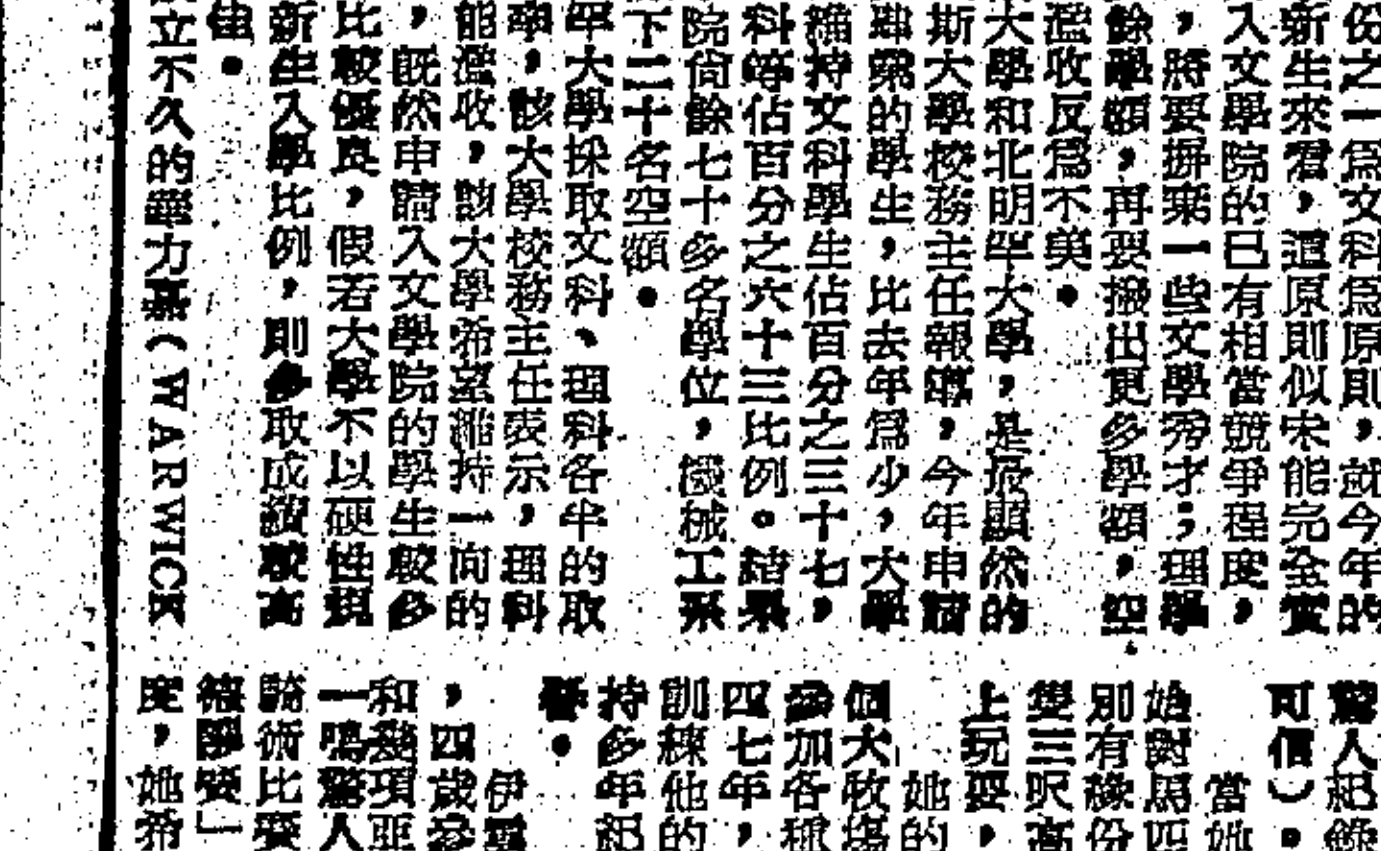 份之一爲文科爲原則,就今年的
新生來看,這原則似未能完全實
入文學院的已有相當競爭程度,
,將要摒棄一些文學秀才;理學
餘學額,再要搬出更多學額,空
濫收反爲不美。
大學和北明罕大學,是最顯然的
斯大學校務主任報導,今年申請
肄業的學生,比去年爲少,大學
維持文科學生佔百分之三十七,
科等佔百分之六十三比例。結果
院尙餘七十多名學位,機械工系
下二十名空額。
罕大學採取文科、理科各半的取
學,該大學校務主任表示,理科
能濫收,該大學希望維持一向的
,既然申請入文學院的學生較多
比較優良,假若大學不以硬性規
新生入學比例,則多取成績較高
佳。
立不久的華力嘉(WARWICK
驚人紀錄
可信)。
當她
她對馬匹
別有緣份
雙三呎高
上玩耍,
她的
個大牧場
參加各種
四七年,
訓練他的
持多年紀
譽。
伊麗
,四歲參
和幾項亞
一鳴驚人
騎術比賽
德
度,她希